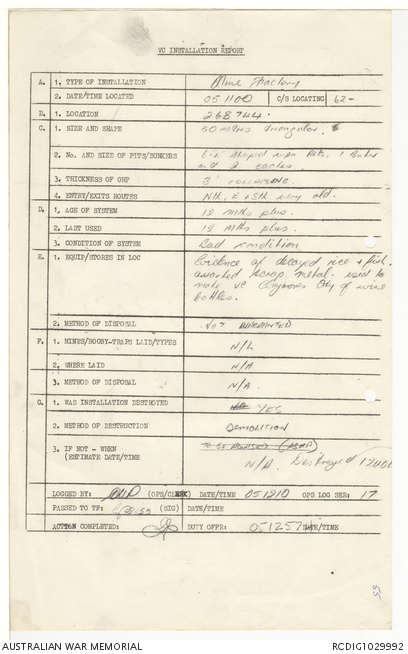 VC INSTALLATION REPORT
A. 1. TYPE OF INSTALLATION Mine Factory
2. DATE/TIME LOCATED 051100 C/S LOCATING 62-
B. 1. LOCATION 268744.
C. 1. SIZE AND SHAPE 50 metres triangular.
2. No. AND SIZE OF PITS/BUNKERS shaped wpn Pits, 1 Bunker
and 2 caches
3. THICKNESS OF OHP 3'
4. ENTRY/EXITS ROUTES Nth, E & Sth very old.
D. 1. AGE OF SYSTEM 18 mths plus.
2. LAST USED 12 mths plus.
3. CONDITION OF SYSTEM Bad condition
E. 1. EQUIP/STORES IN LOC Evidence of decayed rice & fish.
assorted scrap metal used to
make VC Claymores Qty of wine
bottles.
2. METHOD OF DISPOSAL Not
F. 1. MINES/BOOBY-TRAPS LAID/TYPES N/L
2. WHERE LAID N/A
3. METHOD OF DISPOSAL N/A.
G. 1. WAS INSTALLATION DESTROYED YES
2. METHOD OF DESTRUCTION DEMOLITION
3. IF NOT - WHEN
(ESTIMATE DATE/TIME N/A. Destroyed
LOGGED BY: (OPS/CLERK) DATE/TIME 051210 OPS LOG SER: 17
PASSED TO TF: (SIG) DATE/TIME
ACTION COMPLETED: DUTY OFFR: 051257 DATE/TIME
55
AUSTRALIAN WAR MEMORIAL RCDIG1029992